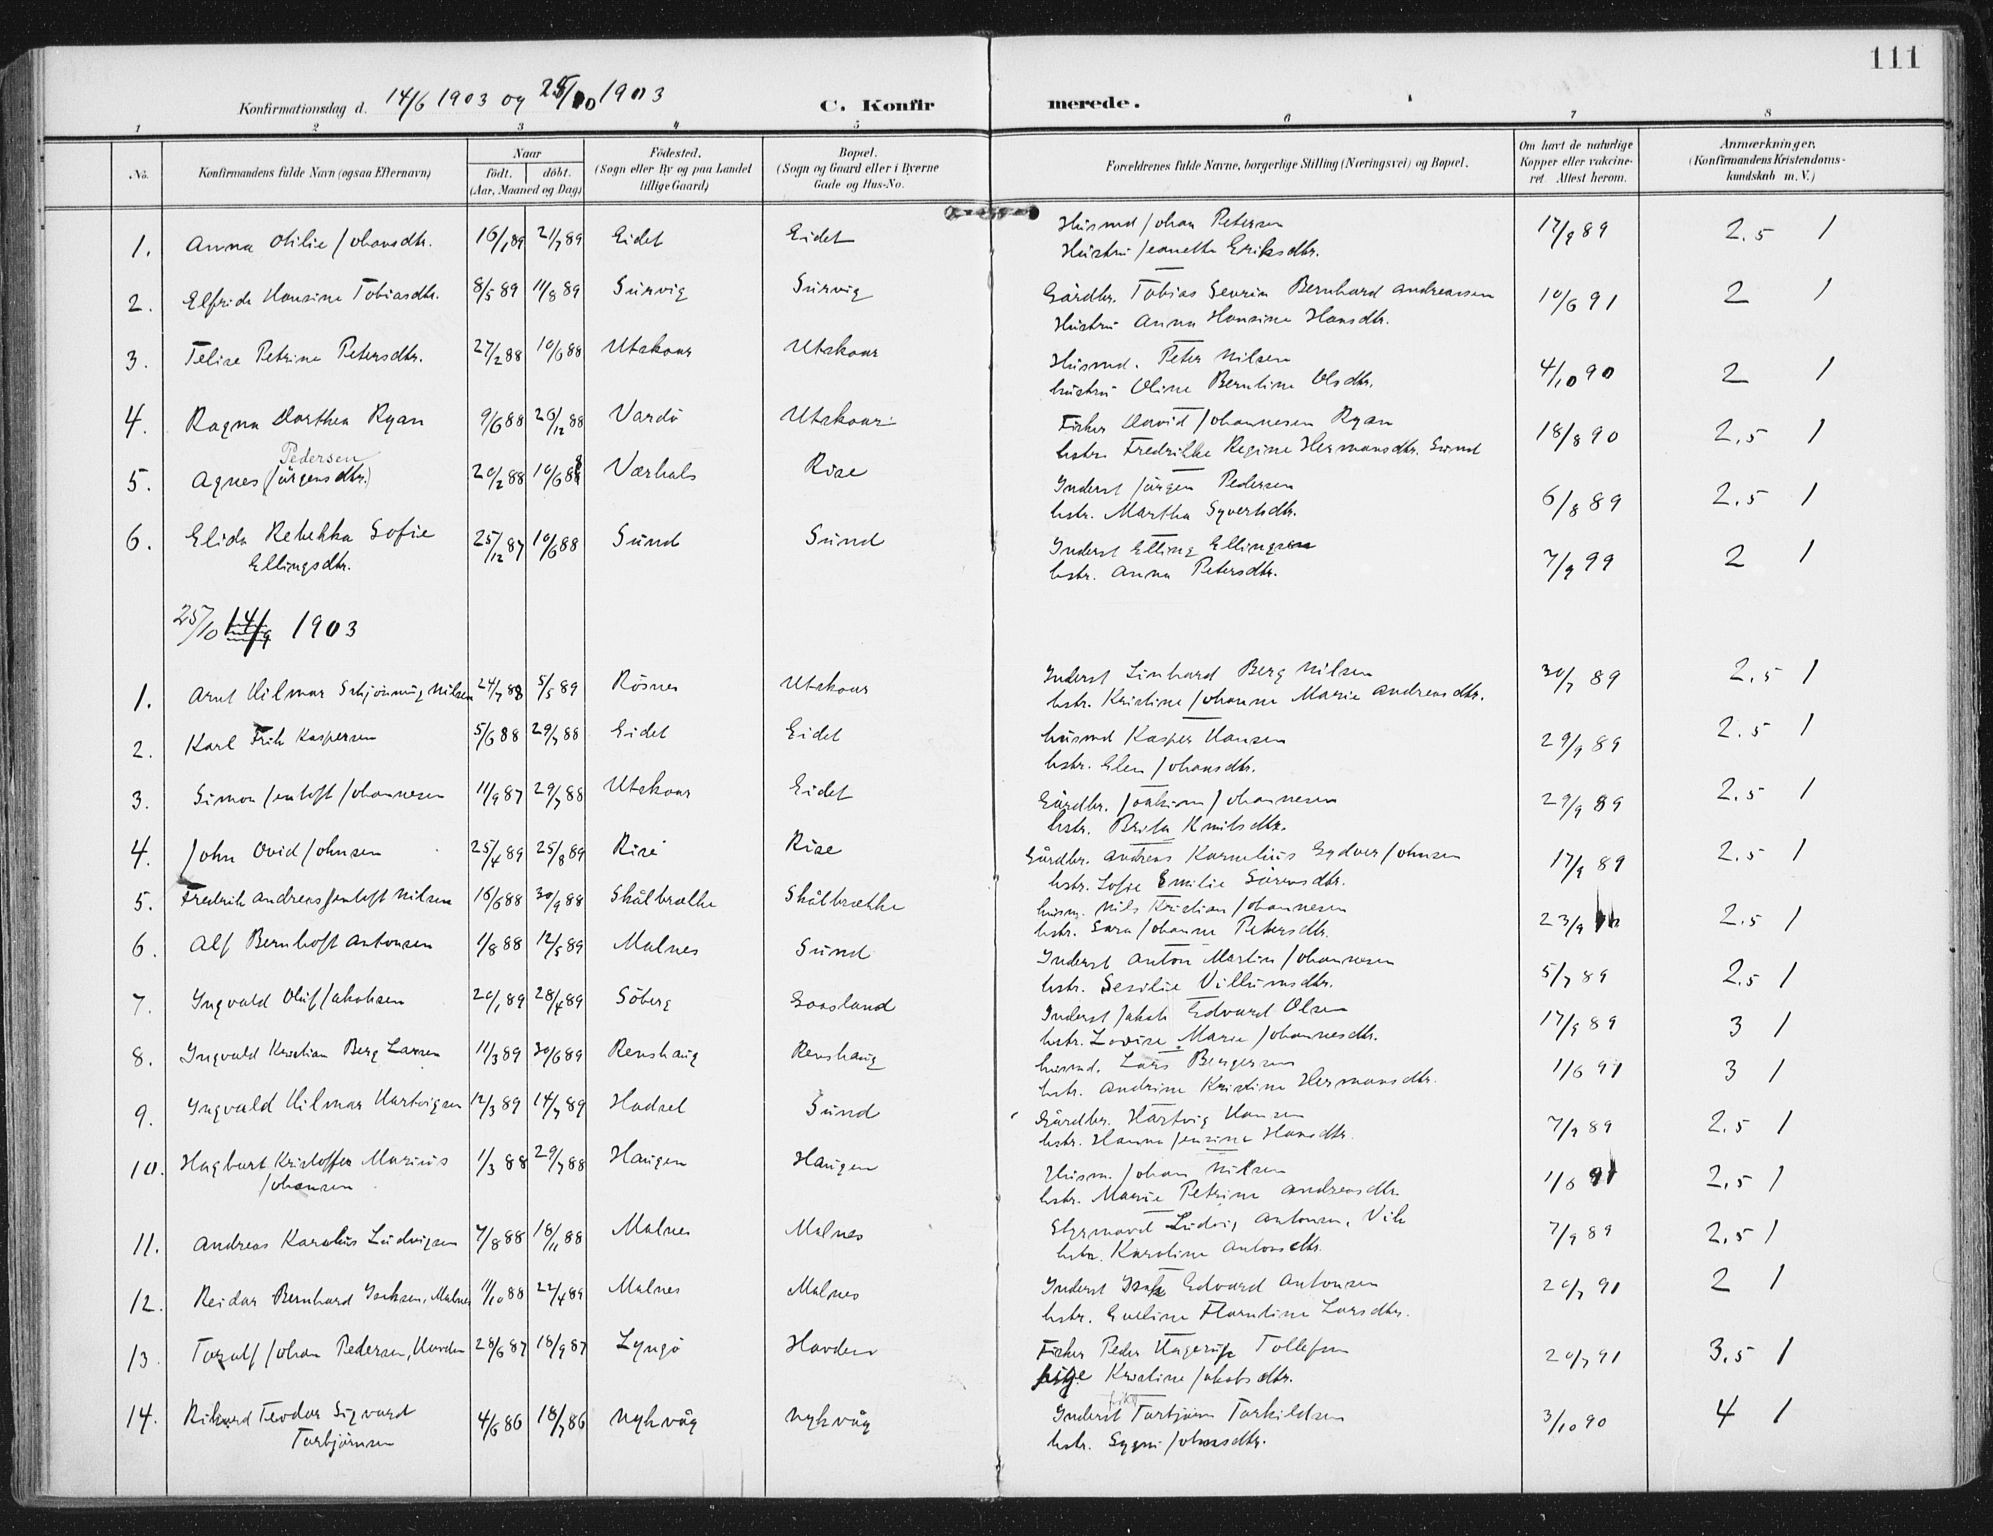 111
Konfirmationsdag d. 14/6 1903 og 25/10 1903 C. Konfirmerede.
1 2 3 4 5 6 7 8
No. Konfirmandens fulde Navn (ogsaa Efternavn) Naar födt. döbt. (Aar, Maaned og Dag) Födested. (Sogn eller By og paa Landet tillige Gaard) Bopæl. (Sogn og Gaard eller i Byerne Gade og Hus-No. Forældrenes fulde Navne, borgerlige Stilling (Næringsvei) og Bopæl. Om havt de naturlige Kopper eller vakcineret. Attest herom. Anmærkninger. (Konfirmandens Kristendomskundskab m. V.)
1. Anna Otilie Johansdtr. 16/7 89 21/7 89 Eidet Eidet Husmd Johan Petersen 17/9 89 2.5 1
Hustru Jeanette Eriksdtr.
2. Elfrida Hansine Tobiasdtr. 8/5 89 11/8 89 Survig Survig Gårdbr. Tobias Severin Bernhard Andreassen 10/6 91 2 1
Hustru Anna Hansine Hansdtr.
3. Felise Petrine Petersdtr. 27/2 88 10/6 88 Utskaar Utskaar Husmd. Peter Nilsen 4/10 90 2 1
hustru Oline Berntine Olsdtr.
4. Ragna Dorthea Ryan 9/6 88 26/12 88 Vardö Utskaar Fisker David Johannesen Ryan 18/8 90 2.5 1
hstr. Fredrikke Regine Hermansdtr. Sund
Pedersen
5. Agnes (Jörgensdtr.) 20/2 88 10/6 88 Værhals Rise Inderst Jörgen Pedersen 6/8 89 2.5 1
hstr. Martha Syvertsdtr.
6. Elida Rebekka Sofie 25/12 87 10/6 88 Sund Sund Inderst Elling Ellingsen 7/9 99 2 1
Ellingsdtr. hstr. Anna Petersdtr.
25/10 14/9 1903
1. Arnt Hilmar Schjönning Nilsen 24/7 88 5/5 89 Rösnes Utskaar Inderst Linhard Berg Nilsen 30/7 89 2.5 1
hstr. Kristine Johanne Marie Andreasdtr.
2. Karl Frik Kaspersen 5/6 88 29/7 88 Eidet Eidet husmd Kasper Hansen 29/9 89 2.5 1
hstr. Elen Johansdtr.
3. Simon Jentoft Johannesen 11/9 87 29/7 88 Utskaar Eidet Gårdbr. Joakim Johannesen 29/9 89 2.5 1
hstr. Brita Knutsdtr.
4. John Ovid Johnsen 25/4 89 25/8 89 Rise Rise Gårdbr. Andreas Kornelius Sydver Johnsen 17/9 89 2.5 1
hstr. Sofie Emilie Sörensdtr.
5. Fredrik Andreas Jentoft Nilsen 16/6 88 30/9 88 Skålbrække Skålbrække husm. Nils Kristian Johannesen 23/9 2.5 1
hstr. Sara Johanne Petersdtr.
6. Alf Bernhoft Antonsen 1/8 88 12/5 89 Malnes Sund Inderst Anton Martin Johannesen 5/7 89 2.5 1
hstr. Sesilie Villumsdtr.
7. Ingvald Oluf Jakobsen 20/1 89 28/4 89 Söberg Gaasland Inderst Jakob Edvard Olsen 17/9 89 3 1
hstr. Lovise Marie Johannesdtr.
8. Ingvald Kristian Berg Larsen 11/3 89 30/6 89 Renshaug Renshaug husmd. Lars Bergersen 1/6 91 3 1
hstr. Andrine Kristine Hermansdtr.
9. Ingvald Hilmar Hartvigsen 12/3 89 14/7 89 Hadsel Sund Gårdbr. Hartvig Hansen 7/9 89 2.5 1
hstr. Hanna Jensine Hansdtr.
10. Hagbart Kristoffer Marius 1/3 88 29/7 88 Haugen Haugen Husm. Johan Nilsen 1/6 91 2.5 1
Johansen hstr. Marie Petrine Andreasdtr.
11. Andreas Karelius Ludvigsen 7/8 88 18/11 88 Malnes Malnes Styrmand Ludvig Antonsen, Vik 7/9 89 2.5 1
hstr. Karoline Antonsdtr.
12. Reidar Bernhard Isaksen, Malnes 11/10 88 22/4 89 Malnes Malnes Inderst Isak Edvard Antonsen 20/7 91 2 1
hstr. Eveline Florentine Larsdtr.
13. Toralf Johan Pedersen, Havden 28/6 87 18/9 87 Lyngö Havden Fisker Peder Hagerup Tollefsen 20/7 91 3.5 1
pige Kristine Jakobsdtr.
14. Rikard Teodor Sigvard 4/6 86 18/7 86 Nykvåg Nykvåg Inderst Torbjörn Torkildsen 3/10 90 4 1
Torbjörnsen hstr. Sygni Johansdtr.